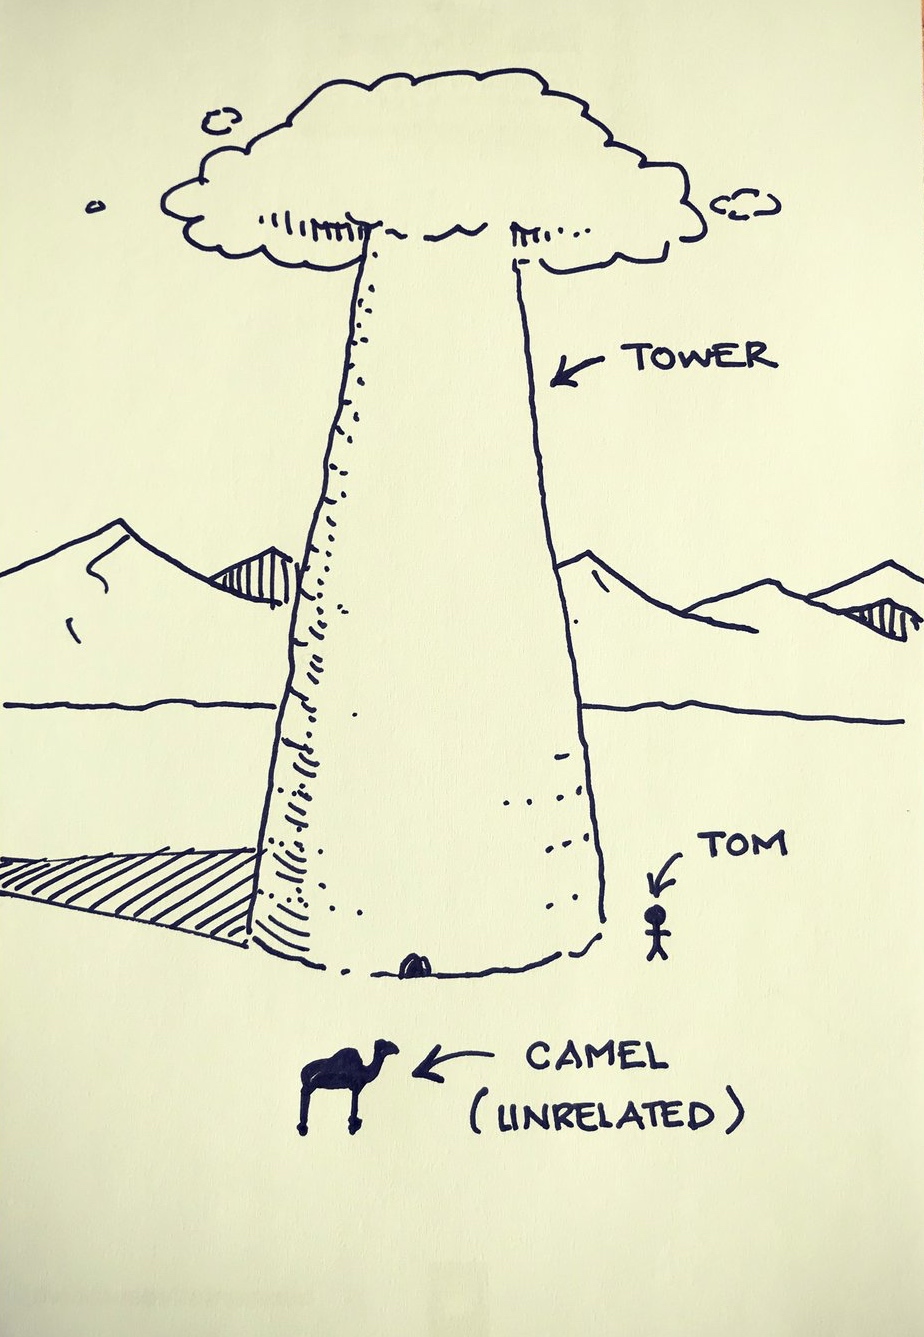 TOWER
TOM
CAMEL
(UNRELATED)